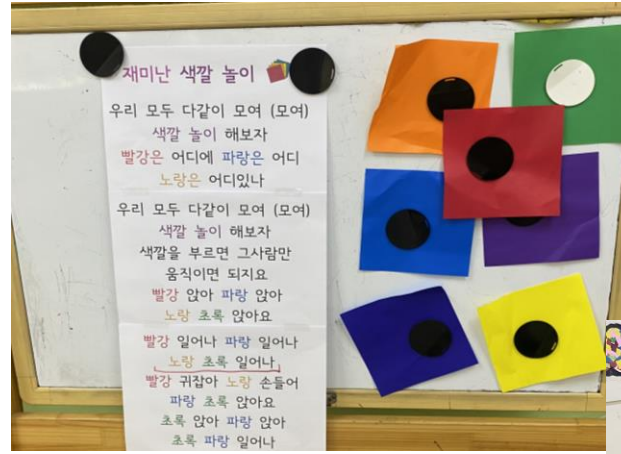 재미난 색깔 놀이
우리 모두 다같이 모여 (모여)
색깔 놀이 해보자
빨강은 어디에 파랑은 어디
노랑은 어디있나
우리 모두 다같이 모여 (모여)
색깔 놀이 해보자
색깔을 부르면 그사람만
움직이면 되지요
빨강 앉아 파랑 앉아
노랑 초록 앉아요
빨강 일어나 파랑 일어나
노랑 초록 일어나
빨강 귀잡아 노랑 손들어
파랑 초록 앉아요
초록 앉아 파랑 앉아
초록 파랑 일어나